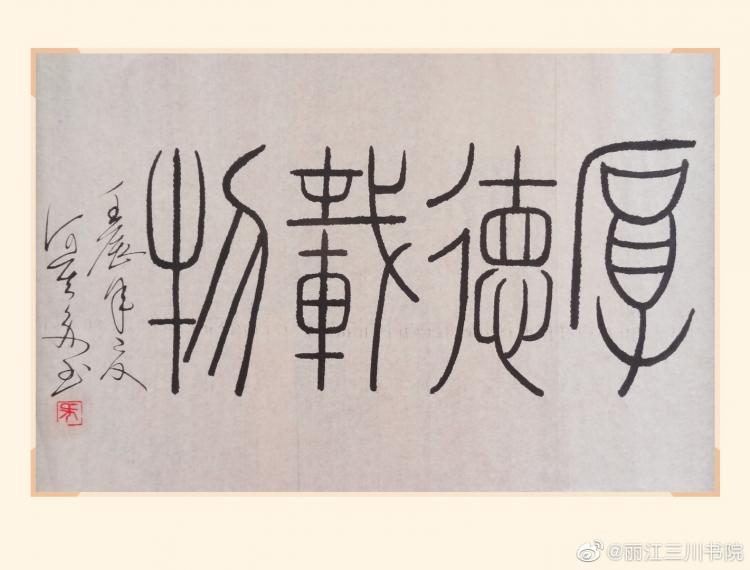 厚德載物
壬辰年夏
@丽江三川书院